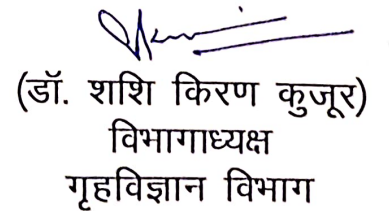 (डॉ. शशि किरण कुजूर)
विभागाध्यक्ष
गृहविज्ञान विभाग